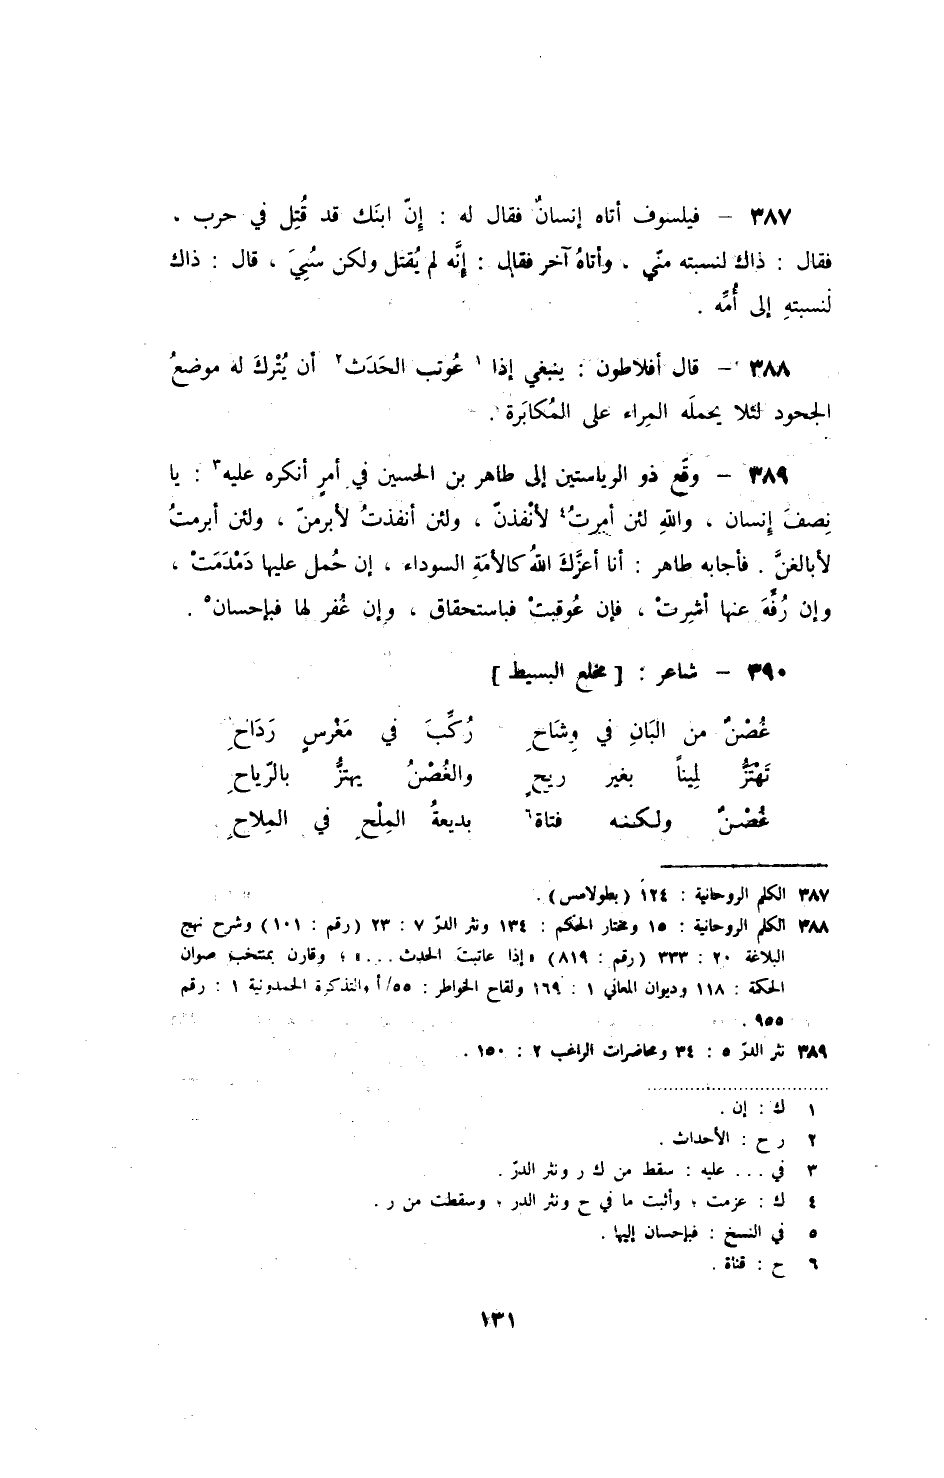 ٣٨٧ – فيلسوف أتاه إنسانٌ فقال له : إنّ ابنَك قد قُتِل في حرب ،
فقال : ذاك لنسبته منّي ، وأتاهُ آخر فقال : إنَّه لم يُقتل ولكن سُبِيَ ، قال : ذاك
لنسبتهِ إلى أُمِّه .
٣٨٨ – قال أفلاطون : ينبغي إذا ١ عُوتب الحَدَث ٢ أن يُتْركَ له موضعُ
الجحود لئلا يحملَه المِراء على المُكابَرة .
٣٨٩ – وقّع ذو الرياستين إلى طاهر بن الحسين في أمرٍ أنكره عليه ٣ : يا
نِصفَ إنسان ، واللهِ لئن أمِرتُ ٤ لأنْفذنّ ، ولئن أنفذتُ لأبرمنّ ، ولئن أبرمتُ
لأبالغنَّ . فأجابه طاهر : أنا أعزَّكَ اللهُ كالأمَةِ السوداء ، إن حُمل عليها دَمْدَمَتْ ،
وإن رُفِّهَ عنها أشِرتْ ، فإن عُوقبتْ فباستحقاق ، وإن غُفر لها فبإحسان ٥ .
٣٩٠ – شاعر : [ مخلع البسيط ]
غُصْنٌ من البَانِ في وِشَاحٍ رُكِّبَ في مَغْرسٍ رَدَاحِ
تَهْتَزُّ لِيناً بغير ريحٍ والغُصْنُ يهتزُّ بالرّياحِ
غُصْنٌ ولكنه فتاة ٦ بديعةُ المِلْحِ في المِلاحِ
٣٨٧ الكلم الروحانية : ١٢٤ (بطولامس) .
٣٨٨ الكلم الروحانية : ١٥ ومختار الحكم : ١٣٤ ونثر الدرّ ٧ : ٢٣ (رقم : ١٠١) وشرح نهج
البلاغة ٢٠ : ٣٣٣ (رقم : ٨١٩) «إذا عاتبتَ الحدث ...» ؛ وقارن بمنتخب صوان
الحكمة : ١١٨ وديوان المعاني ١ : ١٦٩ ولقاح الخواطر : ٥٥/أ والتذكرة الحمدونية ١ : رقم
٩٥٥ .
٣٨٩ نثر الدرّ ٥ : ٣٤ ومحاضرات الراغب ٢ : ١٥٠ .
١ ك : إن .
٢ ر ح : الأحداث .
٣ في ... عليه : سقط من ك ر ونثر الدرّ .
٤ ك : عزمت ؛ وأثبت ما في ح ونثر الدر ؛ وسقطت من ر .
٥ في النسخ : فبإحسان إليها .
٦ ح : قناة .
١٣١